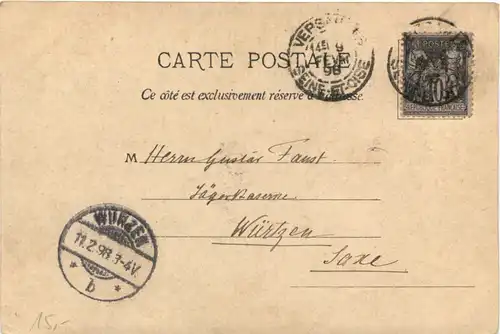 VERSAILLES
9
FEVR
98
SEINE-ET-OISE
POSTE
10
CARTE POSTALE
Ce côté est exclusivement réservé à l'adresse.
M Herrn Gustav Faust.
Jäger Kaserne
Würtzen
Saxe
WURZEN
11.2.98.3-4V.
* b *
15,-